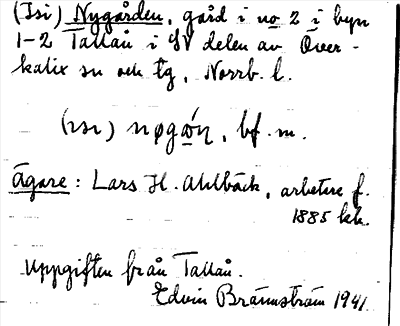 (Isi) Nygården, gård i no 2 i byn
1-2 Tallån i SV delen av Över-
kalix sn och tg, Norrb. l.
(ısı) nøgǫ́ṇ, bf. m.
Ägare: Lars H. Ahlbäck, arbetare f.
1885 kk.
Uppgiften från Tallån.
Edvin Brännström 1941.